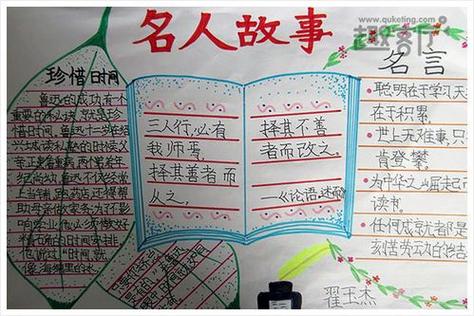 www.quketing.com
名人故事
珍惜时间
鲁迅的成功有个
重要的秘诀就是珍
惜时间。鲁迅十二岁在绍
兴城读私塾的时候父
亲正患着重病，两个弟弟年
纪尚幼，鲁迅不仅经常
上当铺，跑药店，还得帮
助母亲做家务为不影
响学业他必须做好
精确的时间安排
他说过“时间就
像海绵里的水
三人行，必有
我师焉，
择其善者而
从之，
择其不善
者而改之。
——《论语·述而》
名言
聪明在于学习天
在于积累。
世上无难事，只
肯登攀。
为中华之崛起而
读书。
任何成就者都是
刻苦劳动的结
翟玉杰